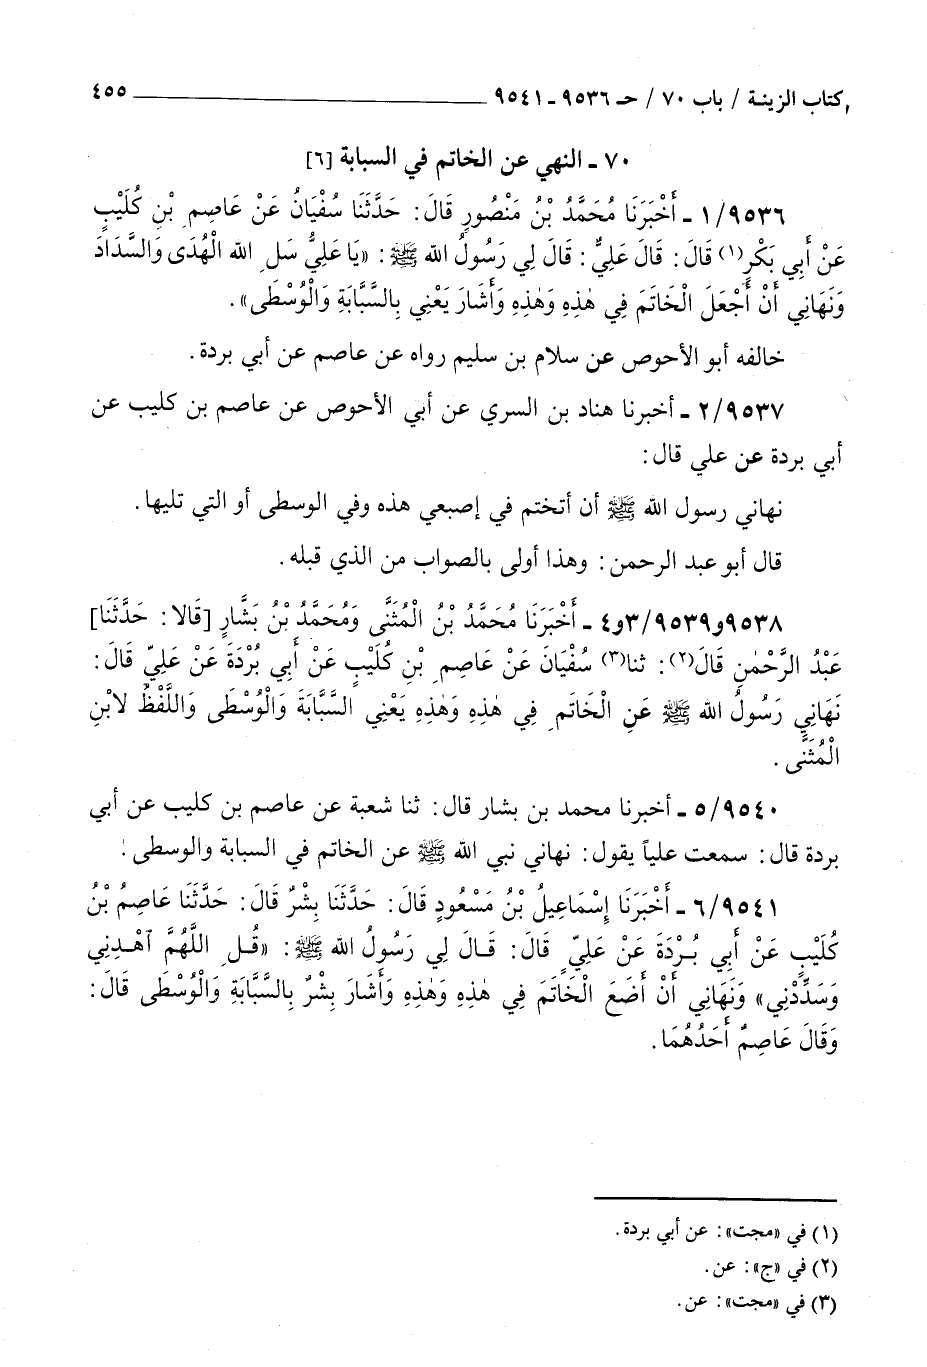 كتاب الزينة / باب ٧٠ / حـ ٩٥٣٦ ـ ٩٥٤١ ٤٥٥
٧٠ ـ النهي عن الخاتم في السبابة [٦]
١/٩٥٣٦ ـ أَخْبَرَنَا مُحَمَّدُ بْنُ مَنْصُورٍ قَالَ: حَدَّثَنَا سُفْيَانُ عَنْ عَاصِمِ بْنِ كُلَيْبٍ
عَنْ أَبِي بَكْرٍ(١) قَالَ: قَالَ عَلِيٌّ: قَالَ لِي رَسُولُ الله ﷺ: «يَا عَلِيُّ سَلِ الله الْهُدَى وَالسَّدَادَ
وَنَهَانِي أَنْ أَجْعَلَ الْخَاتَمَ فِي هٰذِهِ وَهٰذِهِ وَأَشَارَ يَعْنِي بِالسَّبَّابَةِ وَالْوُسْطَى».
خالفه أبو الأحوص عن سلام بن سليم رواه عن عاصم عن أبي بردة.
٢/٩٥٣٧ ـ أخبرنا هناد بن السري عن أبي الأحوص عن عاصم بن كليب عن
أبي بردة عن علي قال:
نهاني رسول الله ﷺ أن أتختم في إصبعي هذه وفي الوسطى أو التي تليها.
قال أبو عبد الرحمن: وهذا أولى بالصواب من الذي قبله.
٩٥٣٨و٣/٩٥٣٩و٤ ـ أَخْبَرَنَا مُحَمَّدُ بْنُ الْمُثَنَّى وَمُحَمَّدُ بْنُ بَشَّارٍ [قَالا: حَدَّثَنَا]
عَبْدُ الرَّحْمٰنِ قَالَ(٢): ثنا(٣) سُفْيَانَ عَنْ عَاصِمِ بْنِ كُلَيْبٍ عَنْ أَبِي بُرْدَةَ عَنْ عَلِيٍّ قَالَ:
نَهَانِي رَسُولُ الله ﷺ عَنِ الْخَاتَمِ فِي هٰذِهِ وَهٰذِهِ يَعْنِي السَّبَّابَةَ وَالْوُسْطَى وَاللَّفْظُ لابْنِ
الْمُثَنَّى.
٥/٩٥٤٠ ـ أخبرنا محمد بن بشار قال: ثنا شعبة عن عاصم بن كليب عن أبي
بردة قال: سمعت علياً يقول: نهاني نبي الله ﷺ عن الخاتم في السبابة والوسطى:
٦/٩٥٤١ ـ أَخْبَرَنَا إِسْمَاعِيلُ بْنُ مَسْعُودٍ قَالَ: حَدَّثَنَا بِشْرٌ قَالَ: حَدَّثَنَا عَاصِمُ بْنُ
كُلَيْبٍ عَنْ أَبِي بُرْدَةَ عَنْ عَلِيٍّ قَالَ: قَالَ لِي رَسُولُ الله ﷺ: «قُلِ اللَّهُمَّ ٱهْدِنِي
وَسَدِّدْنِي» وَنَهَانِي أَنْ أَضَعَ الْخَاتَمَ فِي هٰذِهِ وَهٰذِهِ وَأَشَارَ بِشْرٌ بِالسَّبَّابَةِ وَالْوُسْطَى قَالَ:
وَقَالَ عَاصِمٌ أَحَدُهُمَا.
(١) في «مجت»: عن أبي بردة.
(٢) في «ج»: عن.
(٣) في «مجت»: عن.